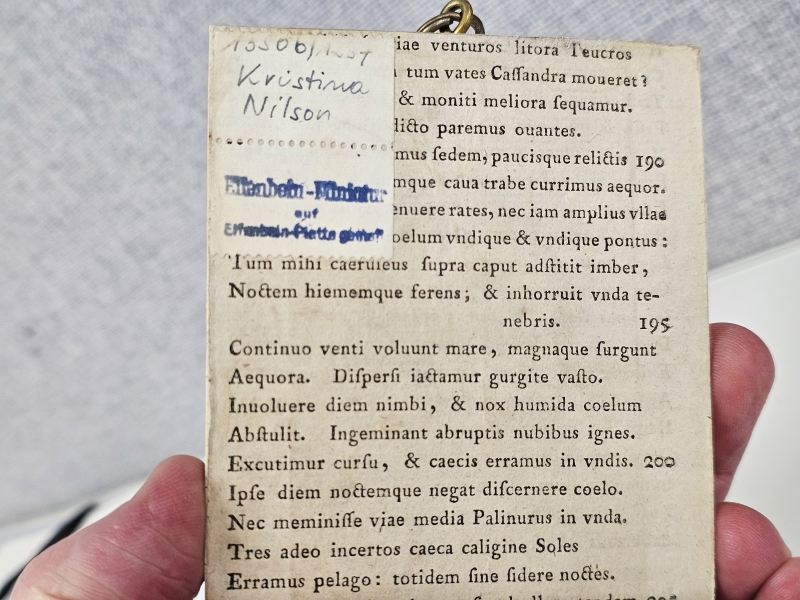 Kristina
Nilson
Elfenbein-Miniatur
auf
Elfenbein-Platte gemalt
iae venturos litora Teucros
tum vates Caſſandra moueret?
& moniti meliora ſequamur.
dicto paremus ouantes.
mus ſedem, paucisque relictis 190
mque caua trabe currimus aequor.
enuere rates, nec iam amplius vllae
oelum vndique & vndique pontus:
Tum mihi caeruleus ſupra caput adſtitit imber,
Noctem hiememque ferens; & inhorruit vnda te-
nebris. 195
Continuo venti voluunt mare, magnaque ſurgunt
Aequora. Diſperſi iactamur gurgite vaſto.
Inuoluere diem nimbi, & nox humida coelum
Abſtulit. Ingeminant abruptis nubibus ignes.
Excutimur curſu, & caecis erramus in vndis. 200
Ipſe diem noctemque negat diſcernere coelo.
Nec meminiſſe viae media Palinurus in vnda.
Tres adeo incertos caeca caligine Soles
Erramus pelago: totidem ſine ſidere noctes.